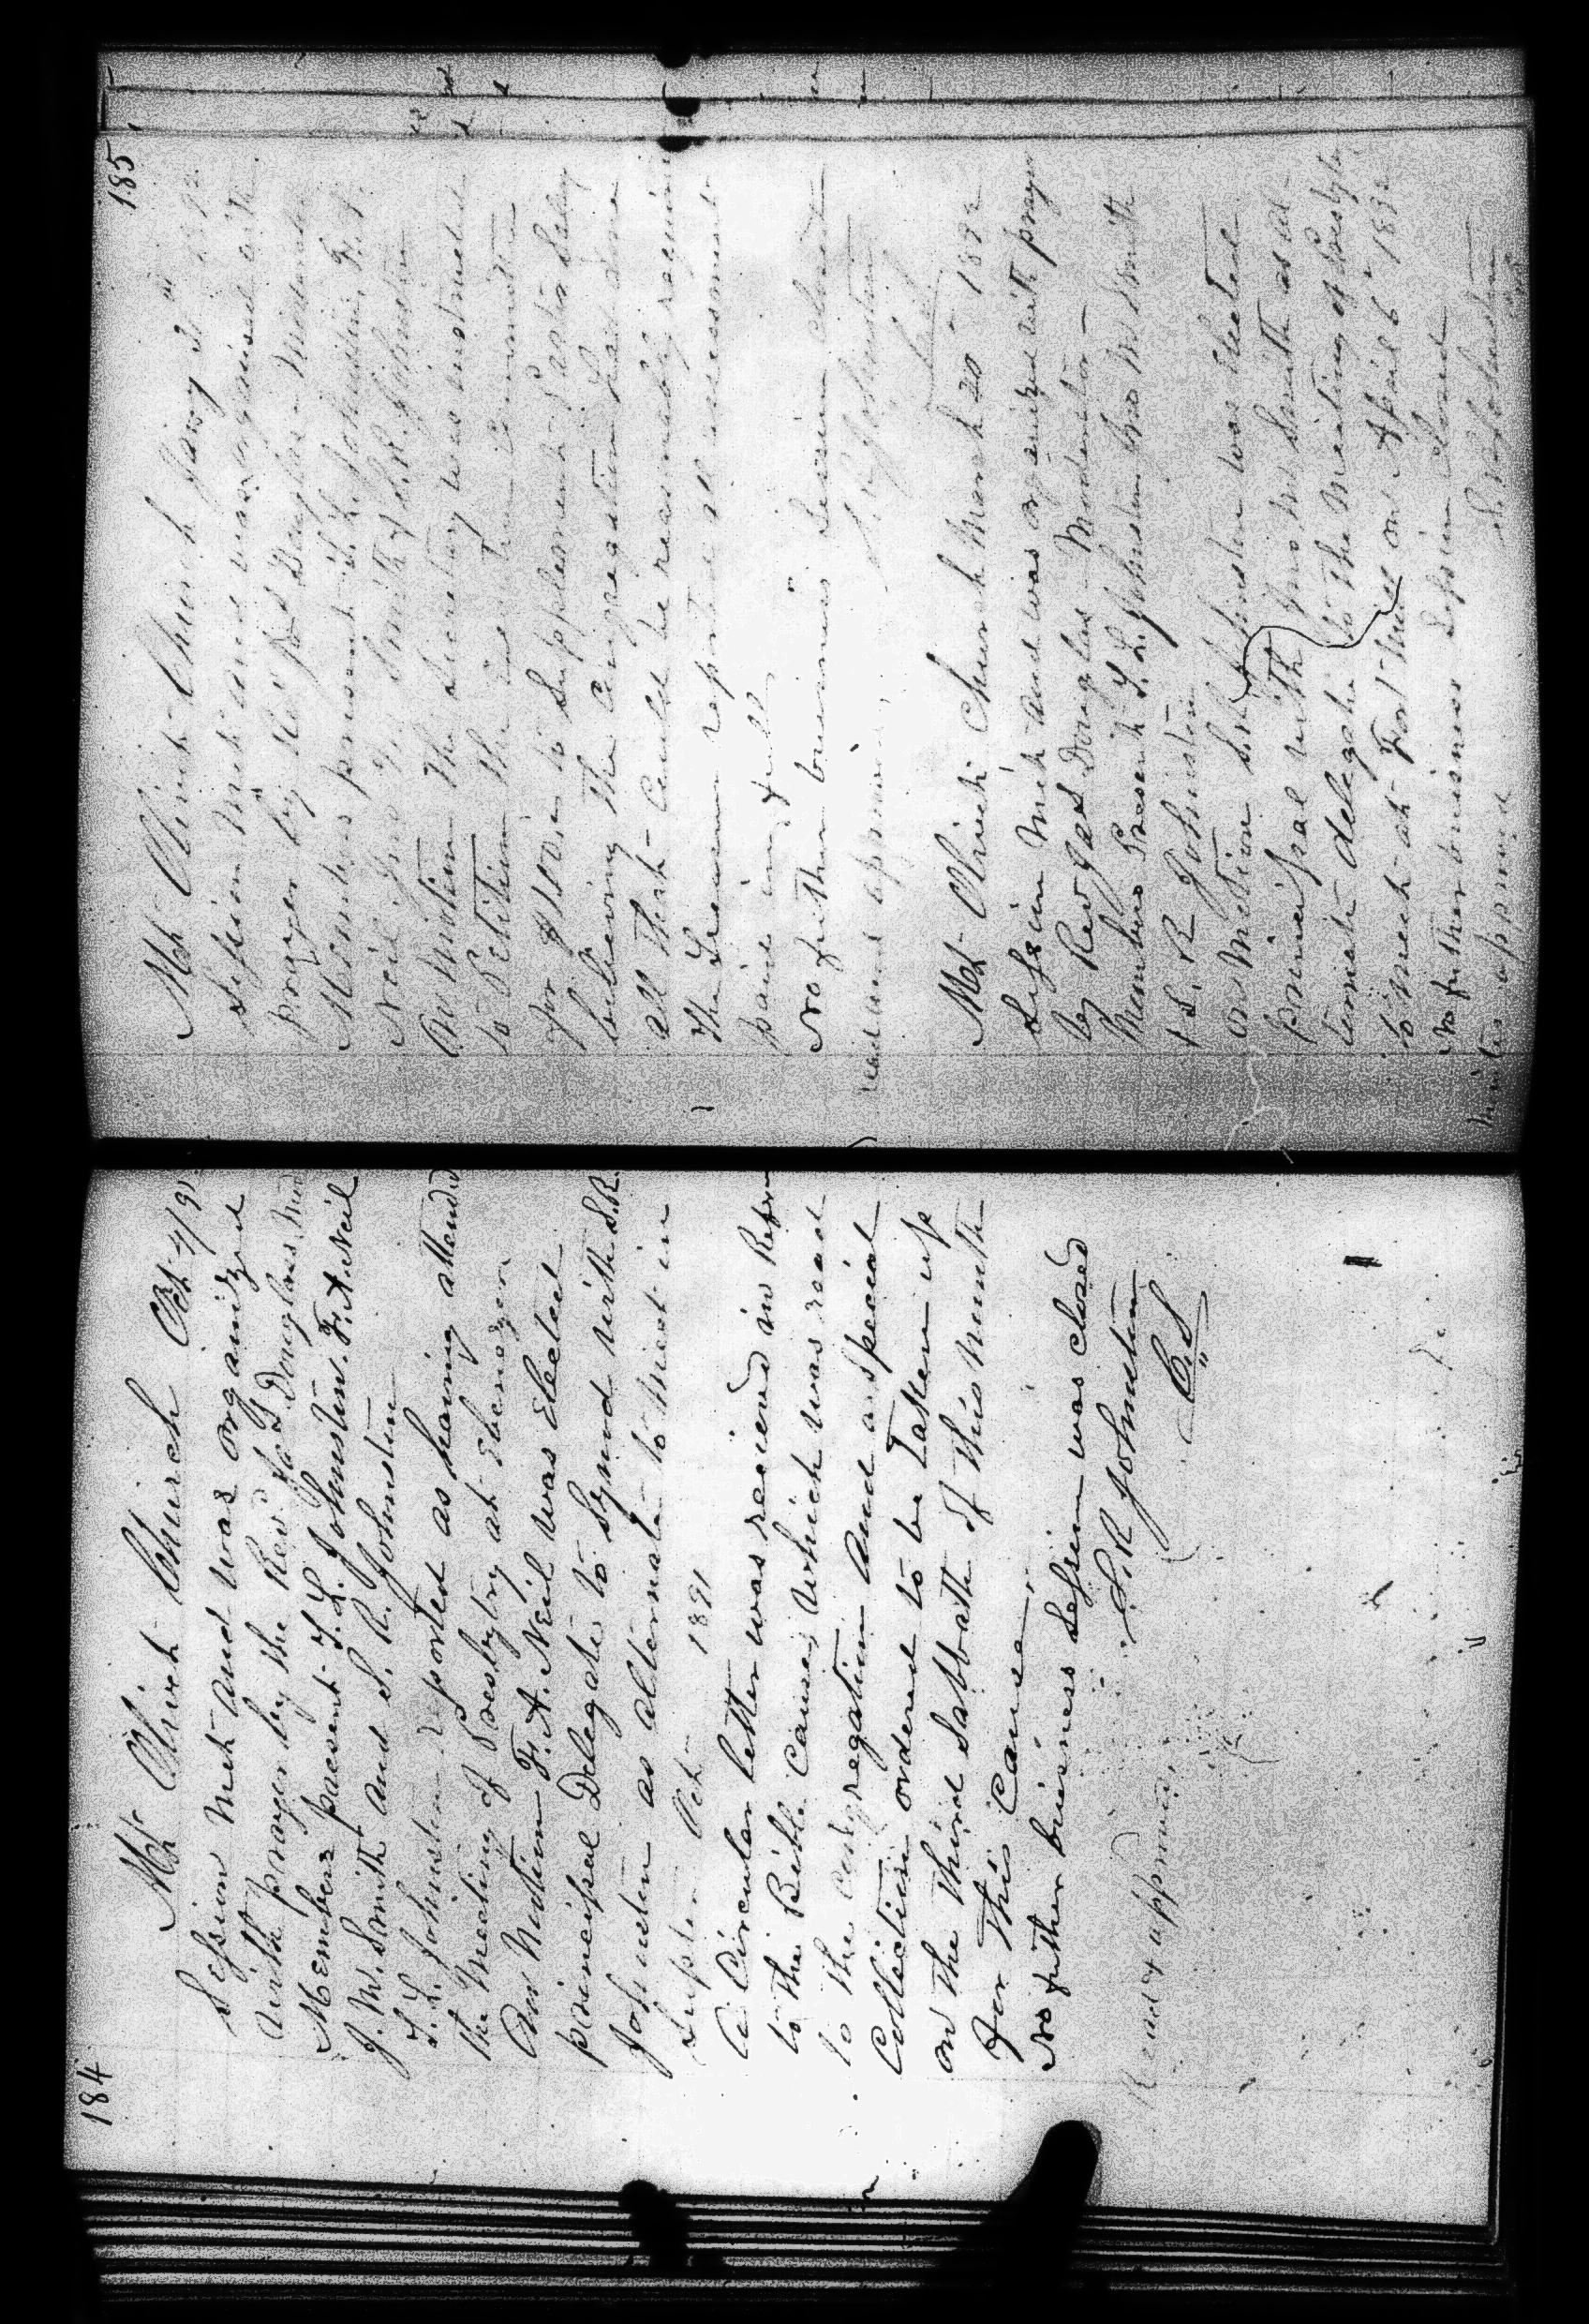 184
Mt Olivet Church Oct 4/91
Session Met and was organized
with prayer by the Rev. Jas Douglas Mod
Members present T. L. Johnston. F. A. Neil
J. M. Smith and S. R. Johnston
T. L. Johnston reported as having attended
the Meeting of Presbytry at Ebenezer
On Motion F. A. Neil was Elected
principal Delegate to Synod with S. R.
Johnston as alternate to Meet in
Oct 1891
A Circular letter was recieved in Refrn
to the Bible Cause which was read
to the congregation and a special
Collection ordered to be Taken up
on the Third Sabbath of This Month
For This Cause
No futher business Session was closed
S. R. Johnston
C. S
Read & approved
185
Mt Olivet Church Jany
Session Met and was organised with
prayer by Rev Jas Douglas Moderator
Members present T. L. Johnston, F. A.
Neil, Jno M Smith & S. R. Johnston
On Motion The Secretary was instructed
to Petition the Committee
for $100.00 to Supplement Pastors Salary
believing the Congregation had done
all that Could be reasonably required
The Treasurer reported all assessments
paid in full
No futher business Session closed
S. R. Johnston
read and approved
Mt Olivet Church March 20 1892
Session Met and was organized with prayer
by Rev Jas Douglas Moderator
Members Present T. L. Johnston Jno M Smith
& S. R Johnston
On Motion S. R. Johnston was Elected
principal with Jno M Smith as al-
ternate delegate to the Meeting of Presbytry
to meet at Fort Mill on April 6" 1892
No futher business Session Closed
S. R. Johnston
Minutes approved